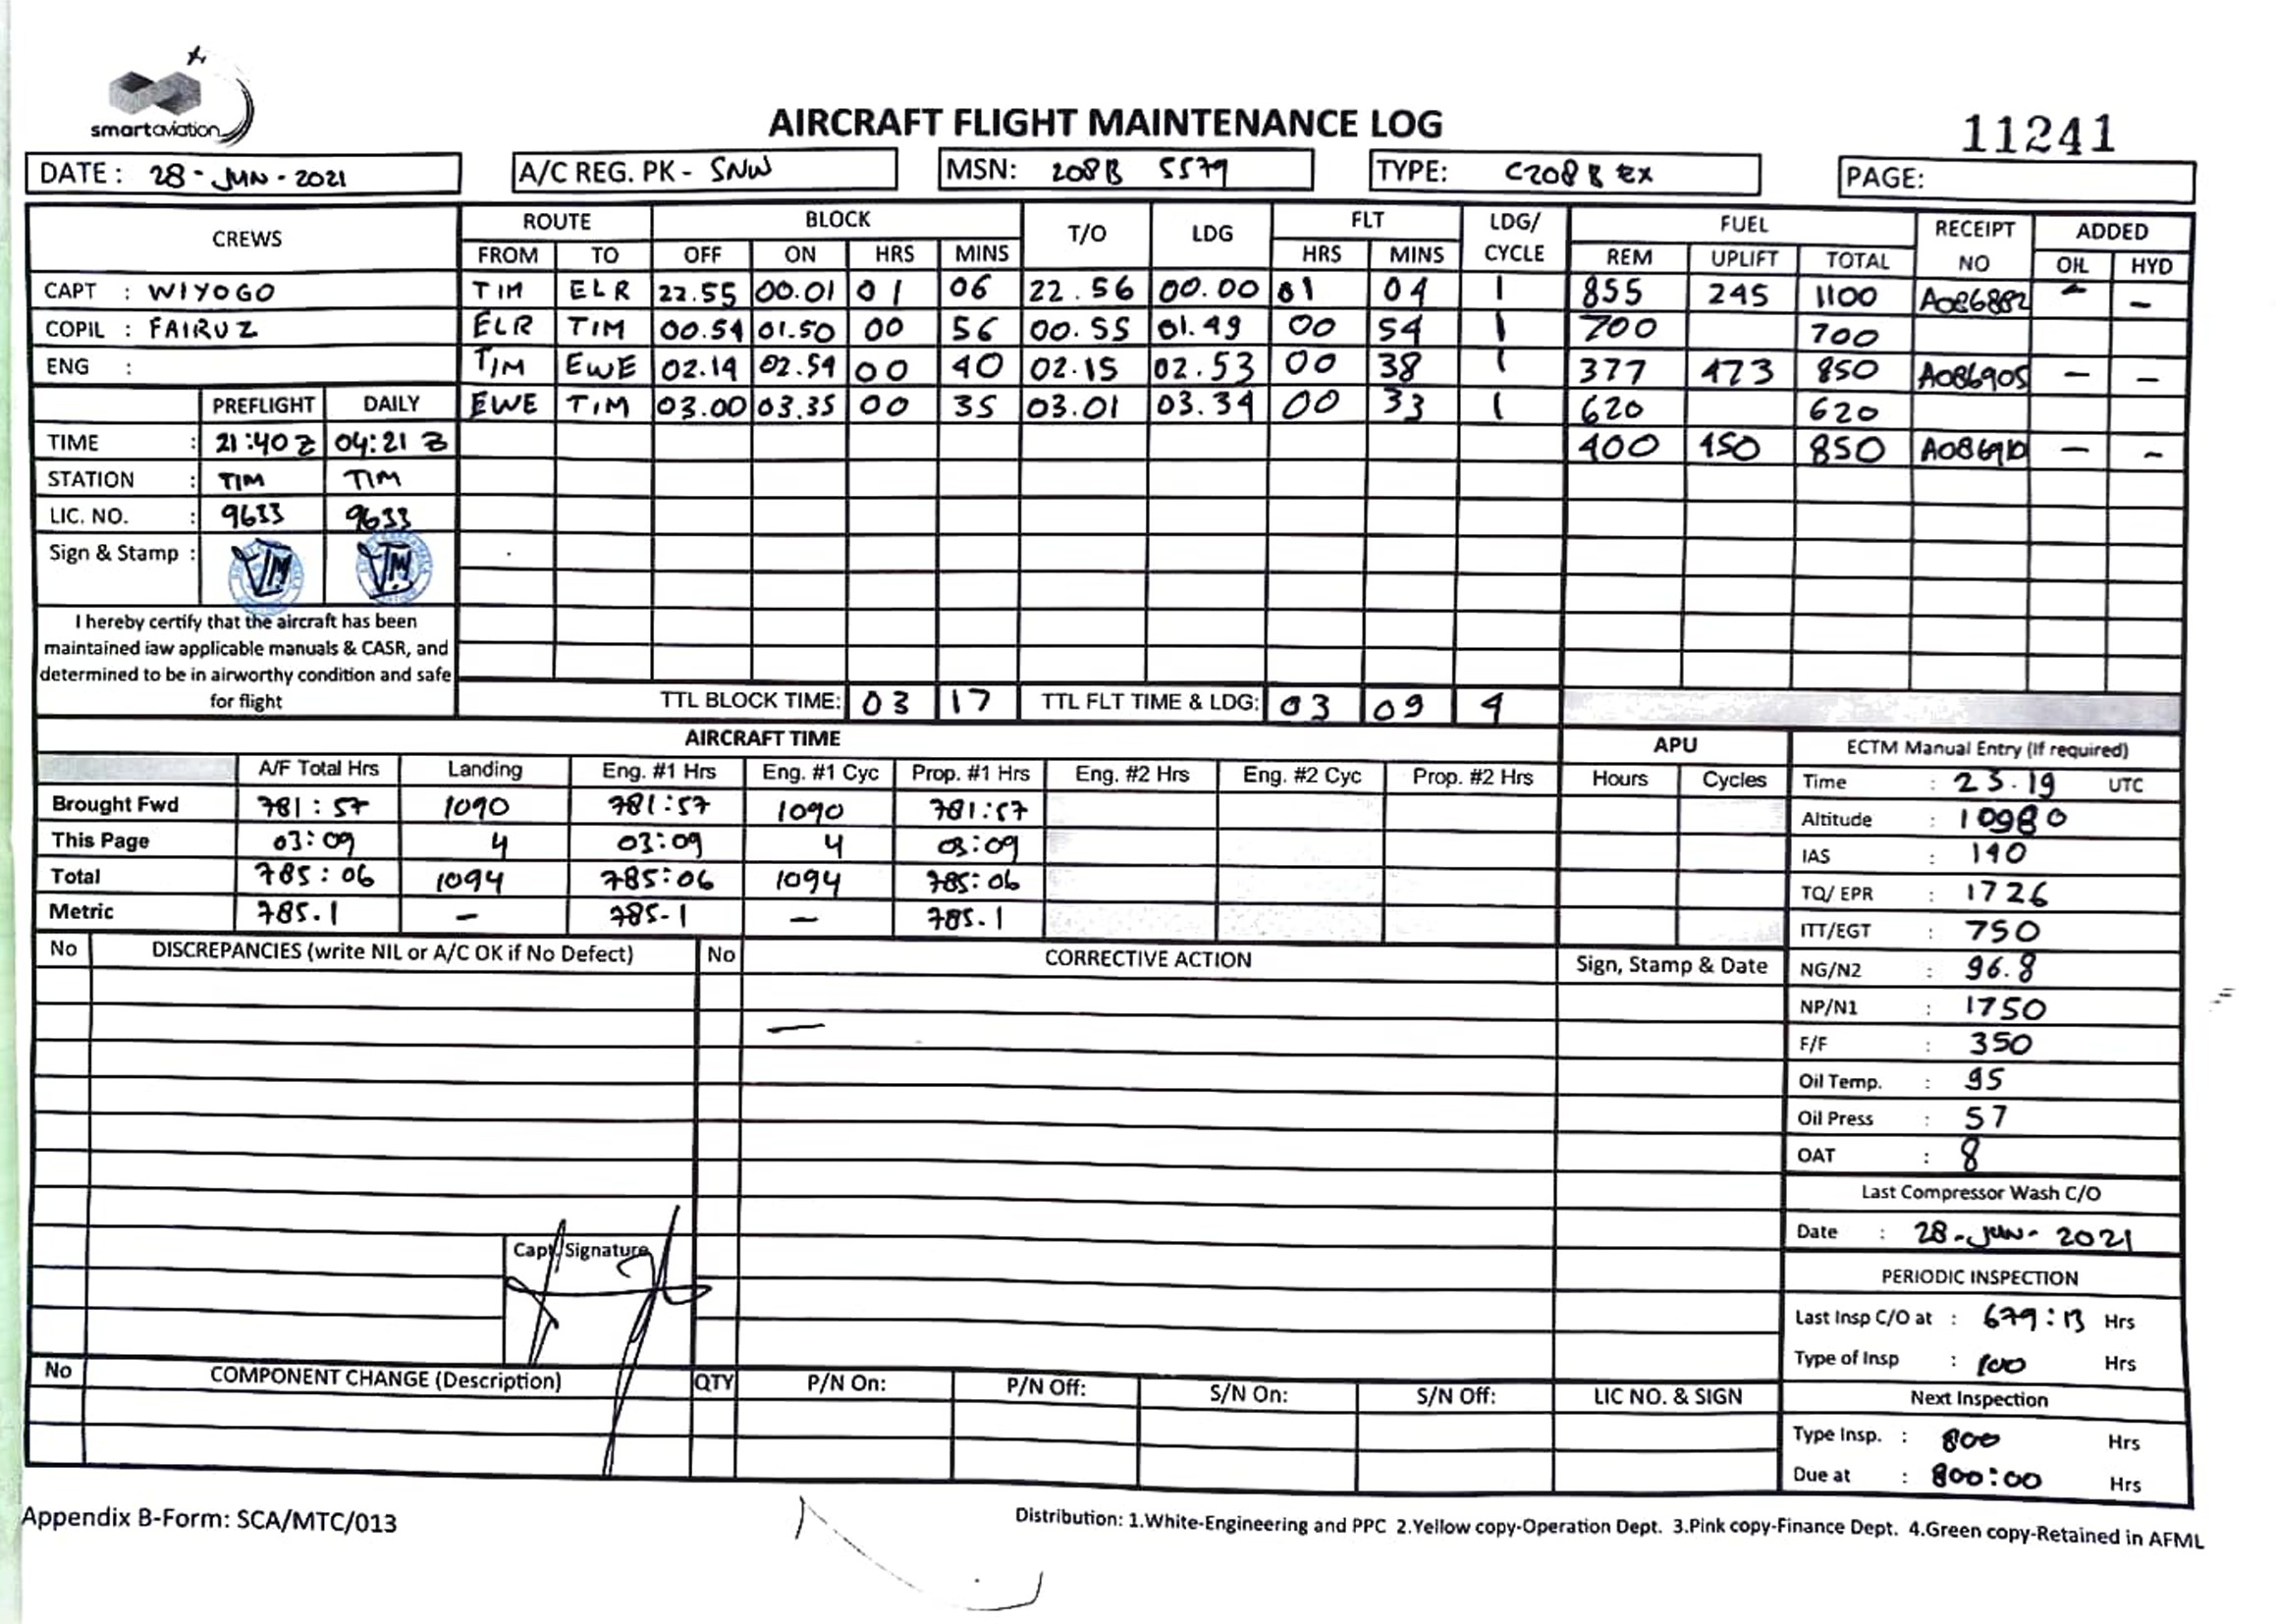 smartaviation
AIRCRAFT FLIGHT MAINTENANCE LOG
11241
DATE: 28-JUN-2021 A/C REG. PK - SNW MSN: 208B 5579 TYPE: C208B EX PAGE:
CREWS ROUTE BLOCK T/O LDG FLT LDG/ CYCLE FUEL RECEIPT NO ADDED
FROM TO OFF ON HRS MINS HRS MINS REM UPLIFT TOTAL OIL HYD
CAPT : WIYOGO TIM ELR 22.55 00.01 01 06 22.56 00.00 01 04 1 855 245 1100 A086882 - -
COPIL : FAIRUZ ELR TIM 00.54 01.50 00 56 00.55 01.49 00 54 1 700 700
ENG : TIM EWE 02.14 02.54 00 40 02.15 02.53 00 38 1 377 473 850 A086905 - -
PREFLIGHT DAILY EWE TIM 03.00 03.35 00 35 03.01 03.34 00 33 1 620 620
TIME : 21:40 Z 04:21 Z 400 450 850 A086910 - -
STATION : TIM TIM
LIC. NO. : 9633 9633
Sign & Stamp :
I hereby certify that the aircraft has been
maintained iaw applicable manuals & CASR, and
determined to be in airworthy condition and safe
for flight
TTL BLOCK TIME: 03 17 TTL FLT TIME & LDG: 03 09 4
AIRCRAFT TIME APU ECTM Manual Entry (If required)
A/F Total Hrs Landing Eng. #1 Hrs Eng. #1 Cyc Prop. #1 Hrs Eng. #2 Hrs Eng. #2 Cyc Prop. #2 Hrs Hours Cycles Time : 23.19 UTC
Brought Fwd 781:57 1090 781:57 1090 781:57 Altitude : 10980
This Page 03:09 4 03:09 4 03:09 IAS : 140
Total 785:06 1094 785:06 1094 785:06 TQ/ EPR : 1726
Metric 785.1 - 785.1 - 785.1 ITT/EGT : 750
No DISCREPANCIES (write NIL or A/C OK if No Defect) No CORRECTIVE ACTION Sign, Stamp & Date NG/N2 : 96.8
NP/N1 : 1750
F/F : 350
Oil Temp. : 95
Oil Press : 57
OAT : 8
Last Compressor Wash C/O
Date : 28-JUN-2021
Capt. Signature
PERIODIC INSPECTION
Last Insp C/O at : 679:13 Hrs
Type of Insp : 100 Hrs
No COMPONENT CHANGE (Description) QTY P/N On: P/N Off: S/N On: S/N Off: LIC NO. & SIGN Next Inspection
Type Insp. : 800 Hrs
Due at : 800:00 Hrs
Appendix B-Form: SCA/MTC/013
Distribution: 1.White-Engineering and PPC 2.Yellow copy-Operation Dept. 3.Pink copy-Finance Dept. 4.Green copy-Retained in AFML